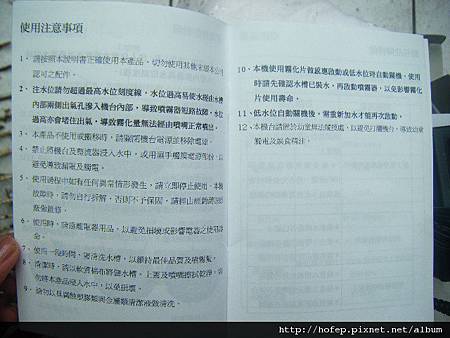 使用注意事項
1、請按照本說明書正確使用本產品,切勿使用其他未經本公司
認可之配件。
2、注水位請勿超過最高水位刻度線,水位過高易使水經由水槽
內部兩側出氣孔滲入機台內部,導致噴霧器短路故障,水位
過高亦會堵住出氣孔,導致霧化量無法經由噴嘴正常噴出。
3、本產品不使用或搬移時,請關閉機台電源並移除電源。
4、禁止將機台及整流器浸入水中,或用濕手觸摸電源部位,以
避免導致漏電及觸電。
5、使用過程中如有任何異常情形發生,請立即停止使用,本機
故障時,請勿自行拆解,否則不予保固,請經由經銷商
6、使用時,請遠離電器用品,以避免損壞或影響電器之使用壽
命。
7、使用一段時間,需清洗水槽,以維持最佳品質及噴霧量。
8、清潔時,請以軟質棉布將儲水槽、上蓋及噴嘴擦拭乾淨,請
勿將本產品浸入水中,以免損壞。
9、請勿以具腐蝕塑膠類與金屬類清潔液做清洗。
10、本機使用霧化片做感應啟動或低水位時自動關機,使用
時請先確認水槽已裝水,再啟動噴霧器,以免影響霧化
片使用壽命。
11、低水位自動關機後,需重新加水才能再次啟動。
12、本機台請放於幼童無法觸摸處,以避免打翻機台,導致幼童
觸電及誤食精油。
http://hofep.pixnet.net/album